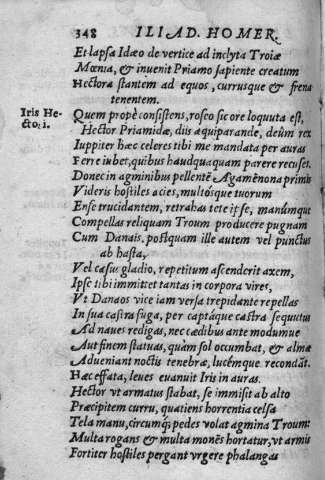 348 ILIAD. HOMER.
Et lapsa Idæo de vertice ad inclyta Troiæ
Mœnia, & invenit Priamo sapiente creatum
Hectora stantem ad equos, currusque & frena
tenentem.
Iris He-
ctori.
Quem propè consistens, roseo sic ore loquuta est,
Hector Priamidæ, diis æquiparande, deûm rex
Iuppiter hæc celeres tibi me mandata per auras
Ferre iubet, quibus haudquaquam parere recuses.
Donec in agminibus pellentē Agamēnona primis
Videris hostiles acies, multósque tuorum
Ense trucidantem, retrahas tete ipse, manúmque
Compellas reliquam Troum producere pugnam
Cum Danais, postquam ille autem vel punctus
ab hasta,
Vel cæsus gladio, repetitum ascenderit axem,
Ipse tibi immittet tantas in corpora vires,
Vt Danaos vice iam versa trepidante repellas
In sua castra fuga, per captáque castra sequutus
Ad naues redigas, nec cædibus ante modumue
Aut finem statuas, quàm sol occumbat, & almæ
Adueniant noctis tenebræ, lucémque recondāt.
Hæc effata, leues euanuit Iris in auras.
Hector vt armatus stabat, se immisit ab alto
Præcipitem curru, quatiens horrentia celsa
Tela manu, circumq; pedes volat agmina Troum:
Multa rogans & multa monēs hortatur, vt armis
Fortiter hostiles pergant vrgere phalangas